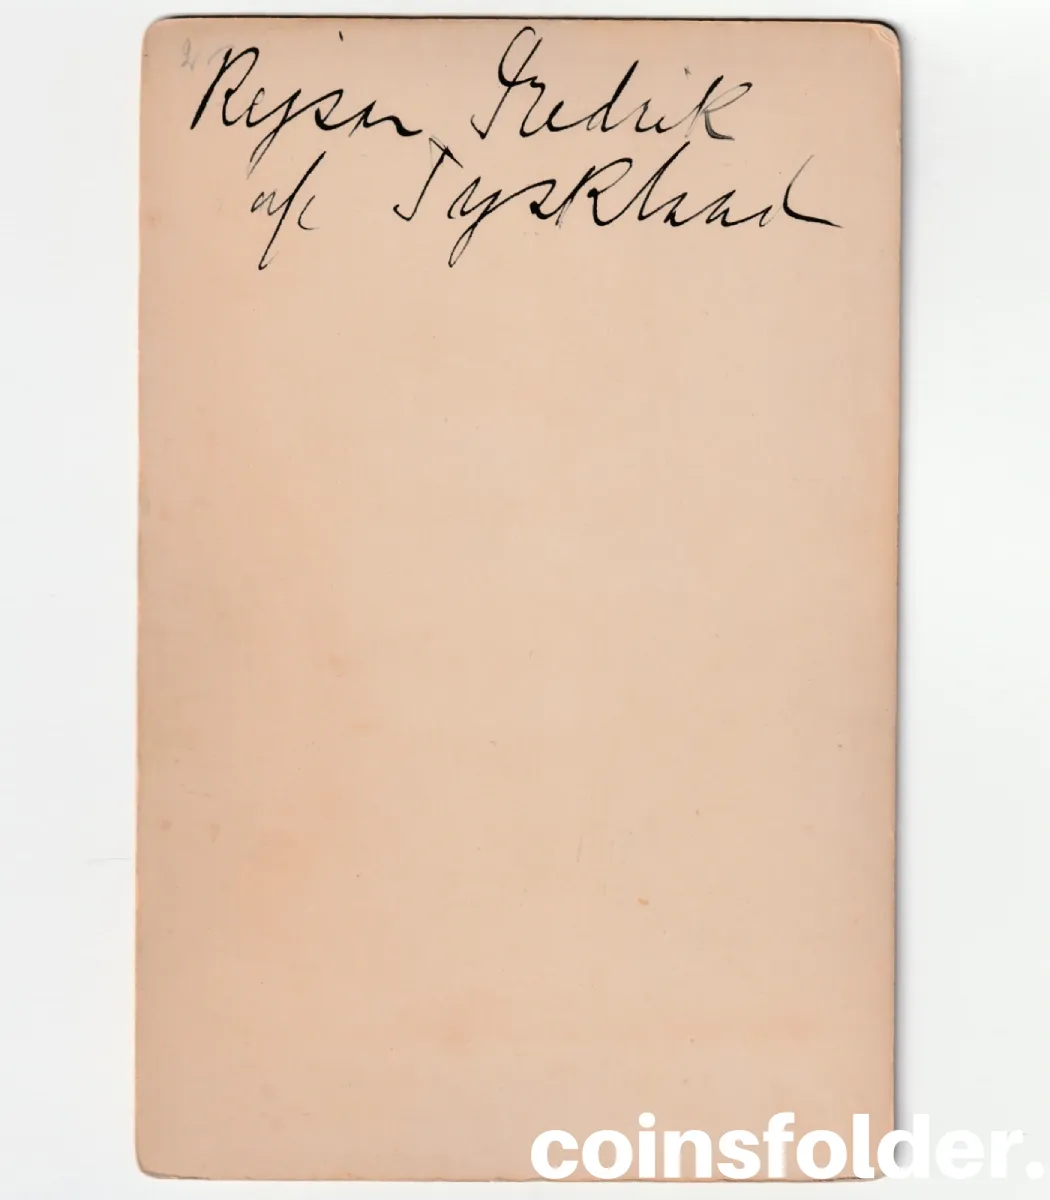 Kejsar Fredrik
af Tyskland
coinsfolder.